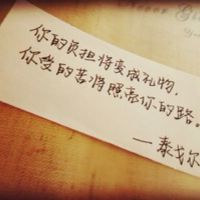 你的负担将变成礼物，
你受的苦将照亮你的路。
—泰戈尔